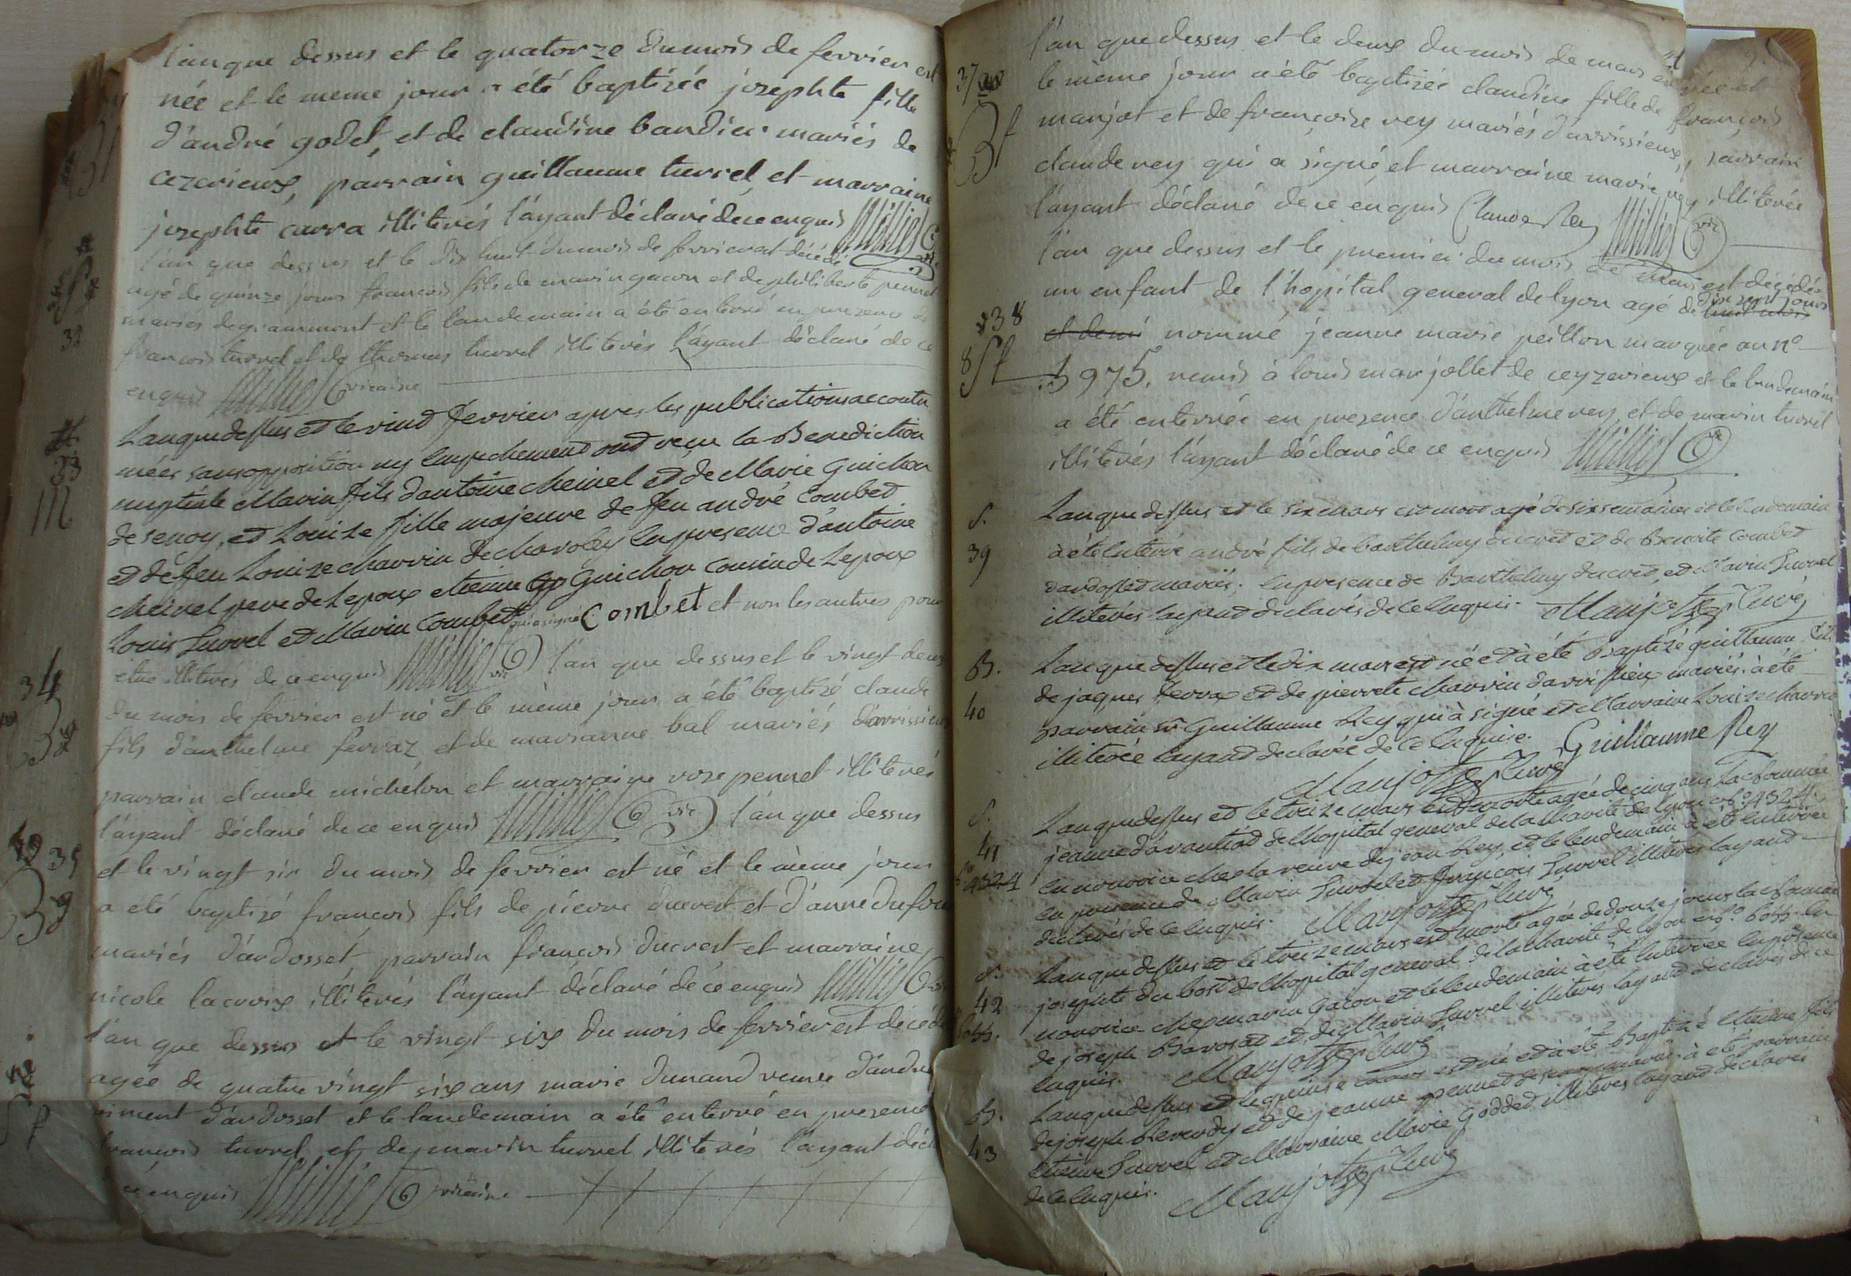 l'an que dessus et le quatorze du mois de fevrier est
née et le meme jour a été baptizée josephte fille
d'andré godet, et de claudine bandier mariés de
cezerieux, parrain guillaume turrel et marraine
josephte carra illiterés l'ayant déclaré de ce enquis Milliet
l'an que dessus et le dix huit du mois de fevrier est décédé
agé de quinze jours françois fils de marin gacon et de philiberte pennet
mariés de grammont et le landemain a été enterré en presence de
françois turrel et de thomas turrel illiterés l'ayant déclaré de ce
enquis Milliet vicaire
33
M
Lan que dessus et le vint fevrier apres les publications accoutu
mées sans opposition ny empechement ont reçu la Benediction
nuptiale Marin fils d'antoine cheinel et de Marie Guichon
de senoy, et Louise fille majeure de feu andré Combet
et de feu Louize charvin de charoley en presence d'antoine
cheinel pere de Lepoux etienne Guichon cousin de Lepoux
Louis Turrel et Marin Combet qui a signé Combet et non les autres pour
etre illiterés de ce enquis Milliet vic l'an que dessus et le vingt deux
34
du mois de fevrier est né et le même jour a été baptizé claude
fils d'anthelme ferraz et de marianne bal mariés d'arrissieux
parrain claude michelon et marraine roze pennet illiterés
l'ayant déclaré de ce enquis Milliet vic l'an que dessus
35
et le vingt six du mois de fevrier est né et le même jour
a été baptizé françois fils de pierre ducrest et d'anne dufour
mariés d'ardosset, parrain françois ducrest et marraine
nicole lacroix illiterés l'ayant déclaré de ce enquis Milliet
l'an que dessus et le vingt six du mois de fevrier est décédée
agée de quatre vingt six ans marie dunand veuve d'andré
d'ardosset et le landemain a été enterré en presence
françois turrel et de marin turrel illiterés l'ayant décl
ce enquis Milliet vicaire
37
l'an que dessus et le deux du mois de mars est née et
le même jour a été baptizée claudine fille de françois
manjot et de françoise rey mariés d'arrissieux, parrain
claude rey qui a signé et marraine marie rey illiterée
l'ayant déclaré de ce enquis Claude Rey Milliet vic
l'an que dessus et le premier du mois de mars est décédée
un enfant de l'hopital general de lyon agé de dix sept jours
38
et demi nommé jeanne marie peillon marquée au n°
3975, remis à louis marjollet de ceyzerieux et le landemain
a été enterrée en presence d'anthelme rey et de marin turrel
illiterés l'ayant déclaré de ce enquis Milliet vic
S.
39
Lan que dessus et le six mars est mort agé de six semaines et le lendemain
à été Enterré andré fils de Barthelemy ducret et de Benoite Combet
dardosset mariés. En presence de Barthelemy ducret, et Marin Turrel
illiterés layant declarés de ce Enquis. Manjot curé
B.
40
Lan que dessus et le dix mars est né et à été Baptizé guillaume fils
de jaques ferraz et de pierrete charvin darrissieux mariés. à été
parrain sr Guillaume Rey qui à signé et Marraine Louize charvin
illiterée layant declarée de ce Enquise. Guillaume Rey
Manjot curé
S.
41
n° 4324
Lan que dessus et le treize mars est morte agée de cinq ans La nommée
jeanne d'avantiod de lhopital general de la charité de Lyon n° 4324.
En nourrice chez la veuve de jean Rey, et le lendemain à été Enterrée
En presence de Marin Turrel et françois Turrel illiterés layant
declarés de ce Enquis. Manjot curé
S.
42
Lan que dessus et le treize mars est morte agée de douze jours La nommée
josephte du bost de lhopital general de la charité de Lyon n° 6055. En
nourrice chez marin Gacon et le lendemain à été Enterrée En presence
de joseph Bavorat et de Marin Turrel illiterés layant declarés de ce
Enquis. Manjot curé
B.
43
Lan que dessus et le quinze mars est né et à été Baptizé etienne fils
de joseph Reverdy et de jeanne pennet mariés à été parrain
etienne Turrel et Marraine Marie Goddet illiterés layant declarés
de ce Enquis. Manjot curé